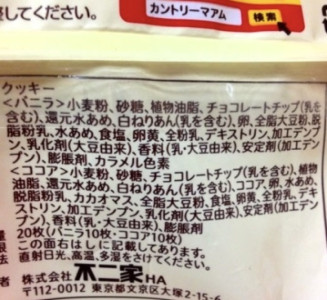 してください。
カントリーマアム 検索
クッキー
<バニラ>小麦粉、砂糖、植物油脂、チョコレートチップ(乳を含む)、還元水あめ、白ねりあん(乳を含む)、卵、全脂大豆粉、脱
脂粉乳、水あめ、食塩、卵黄、全粉乳、デキストリン、加工デンプ
ン、乳化剤(大豆由来)、香料(乳・大豆由来)、安定剤(加工デン
プン)、膨脹剤、カラメル色素
<ココア>小麦粉、砂糖、チョコレートチップ(乳を含む)、植物
油脂、還元水あめ、白ねりあん(乳を含む)、ココア、卵、水あめ、
脱脂粉乳、カカオマス、全脂大豆粉、食塩、卵黄、全粉乳、デキ
ストリン、加工デンプン、乳化剤(大豆由来)、安定剤(加工デン
プン)、香料(乳・大豆由来)、膨脹剤
量 20枚(バニラ10枚・ココア10枚)
限 この面右はしに記載してあります。
法 直射日光、高温、多湿をさけてください。
者 株式会社 不二家 HA
〒112-0012 東京都文京区大塚2-15-6